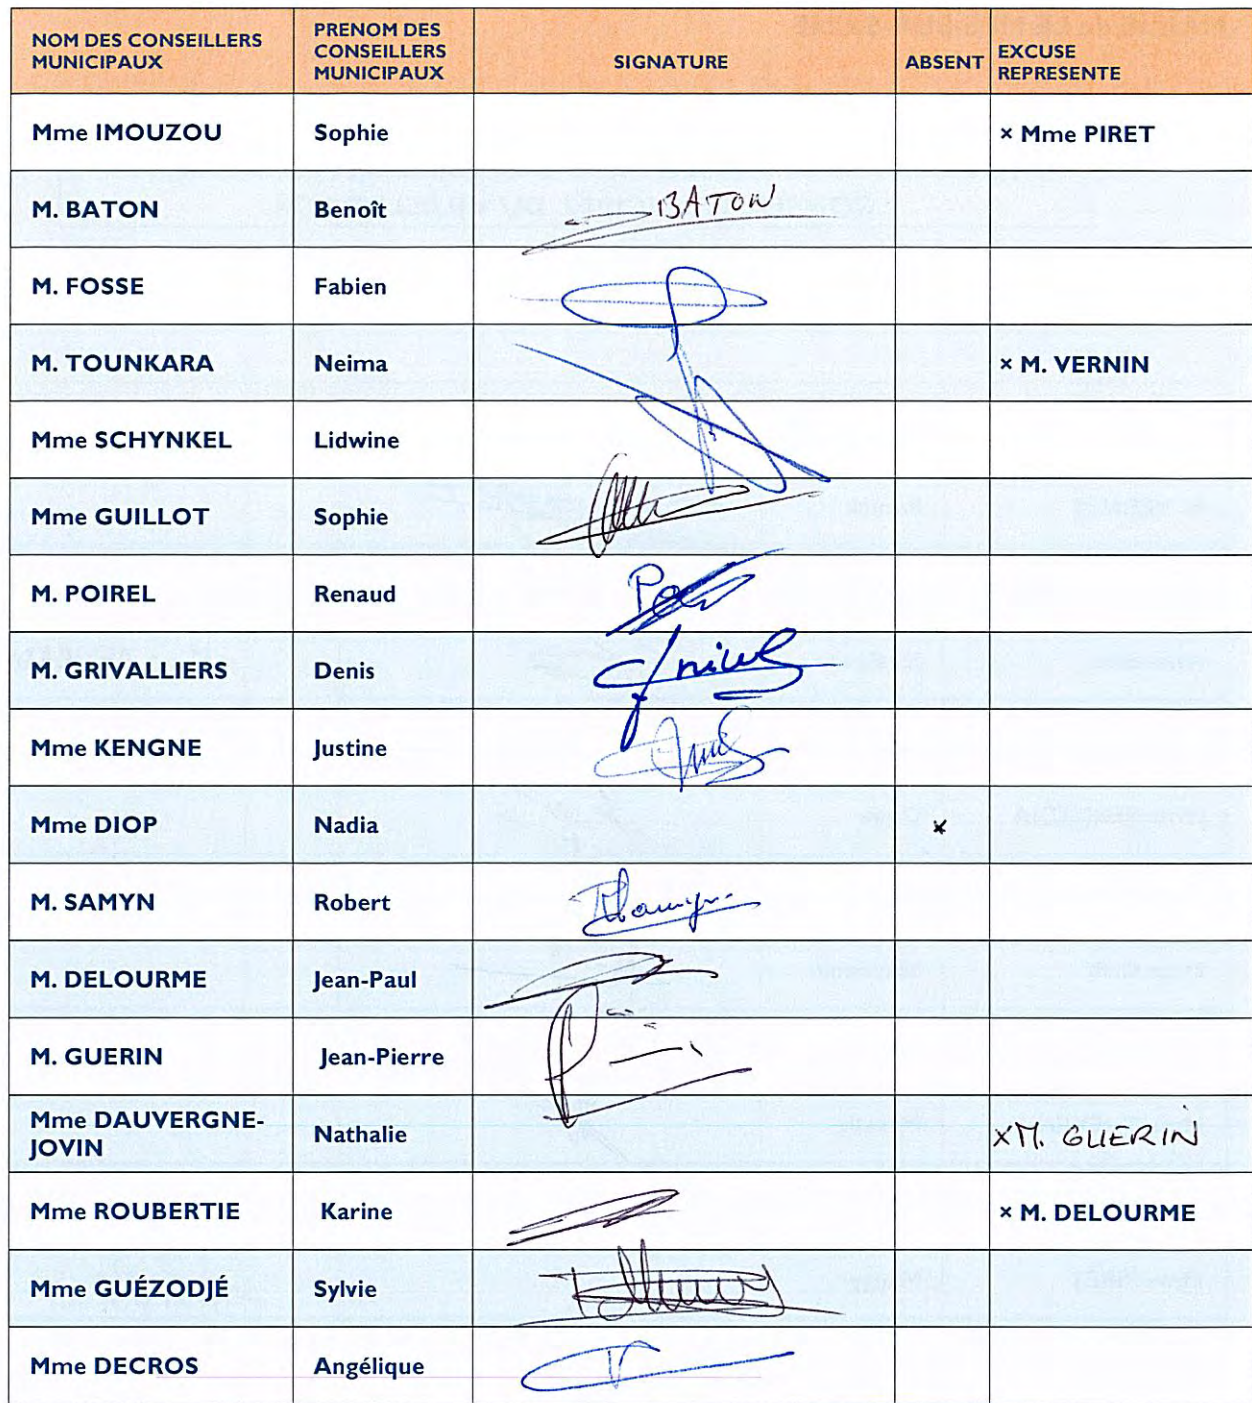 NOM DES CONSEILLERS MUNICIPAUX PRENOM DES CONSEILLERS MUNICIPAUX SIGNATURE ABSENT EXCUSE REPRESENTE
Mme IMOUZOU Sophie × Mme PIRET
M. BATON Benoît BATON
M. FOSSE Fabien
M. TOUNKARA Neima × M. VERNIN
Mme SCHYNKEL Lidwine
Mme GUILLOT Sophie
M. POIREL Renaud
M. GRIVALLIERS Denis
Mme KENGNE Justine
Mme DIOP Nadia ×
M. SAMYN Robert
M. DELOURME Jean-Paul
M. GUERIN Jean-Pierre
Mme DAUVERGNE-JOVIN Nathalie XM. GUERIN
Mme ROUBERTIE Karine × M. DELOURME
Mme GUÉZODJÉ Sylvie
Mme DECROS Angélique